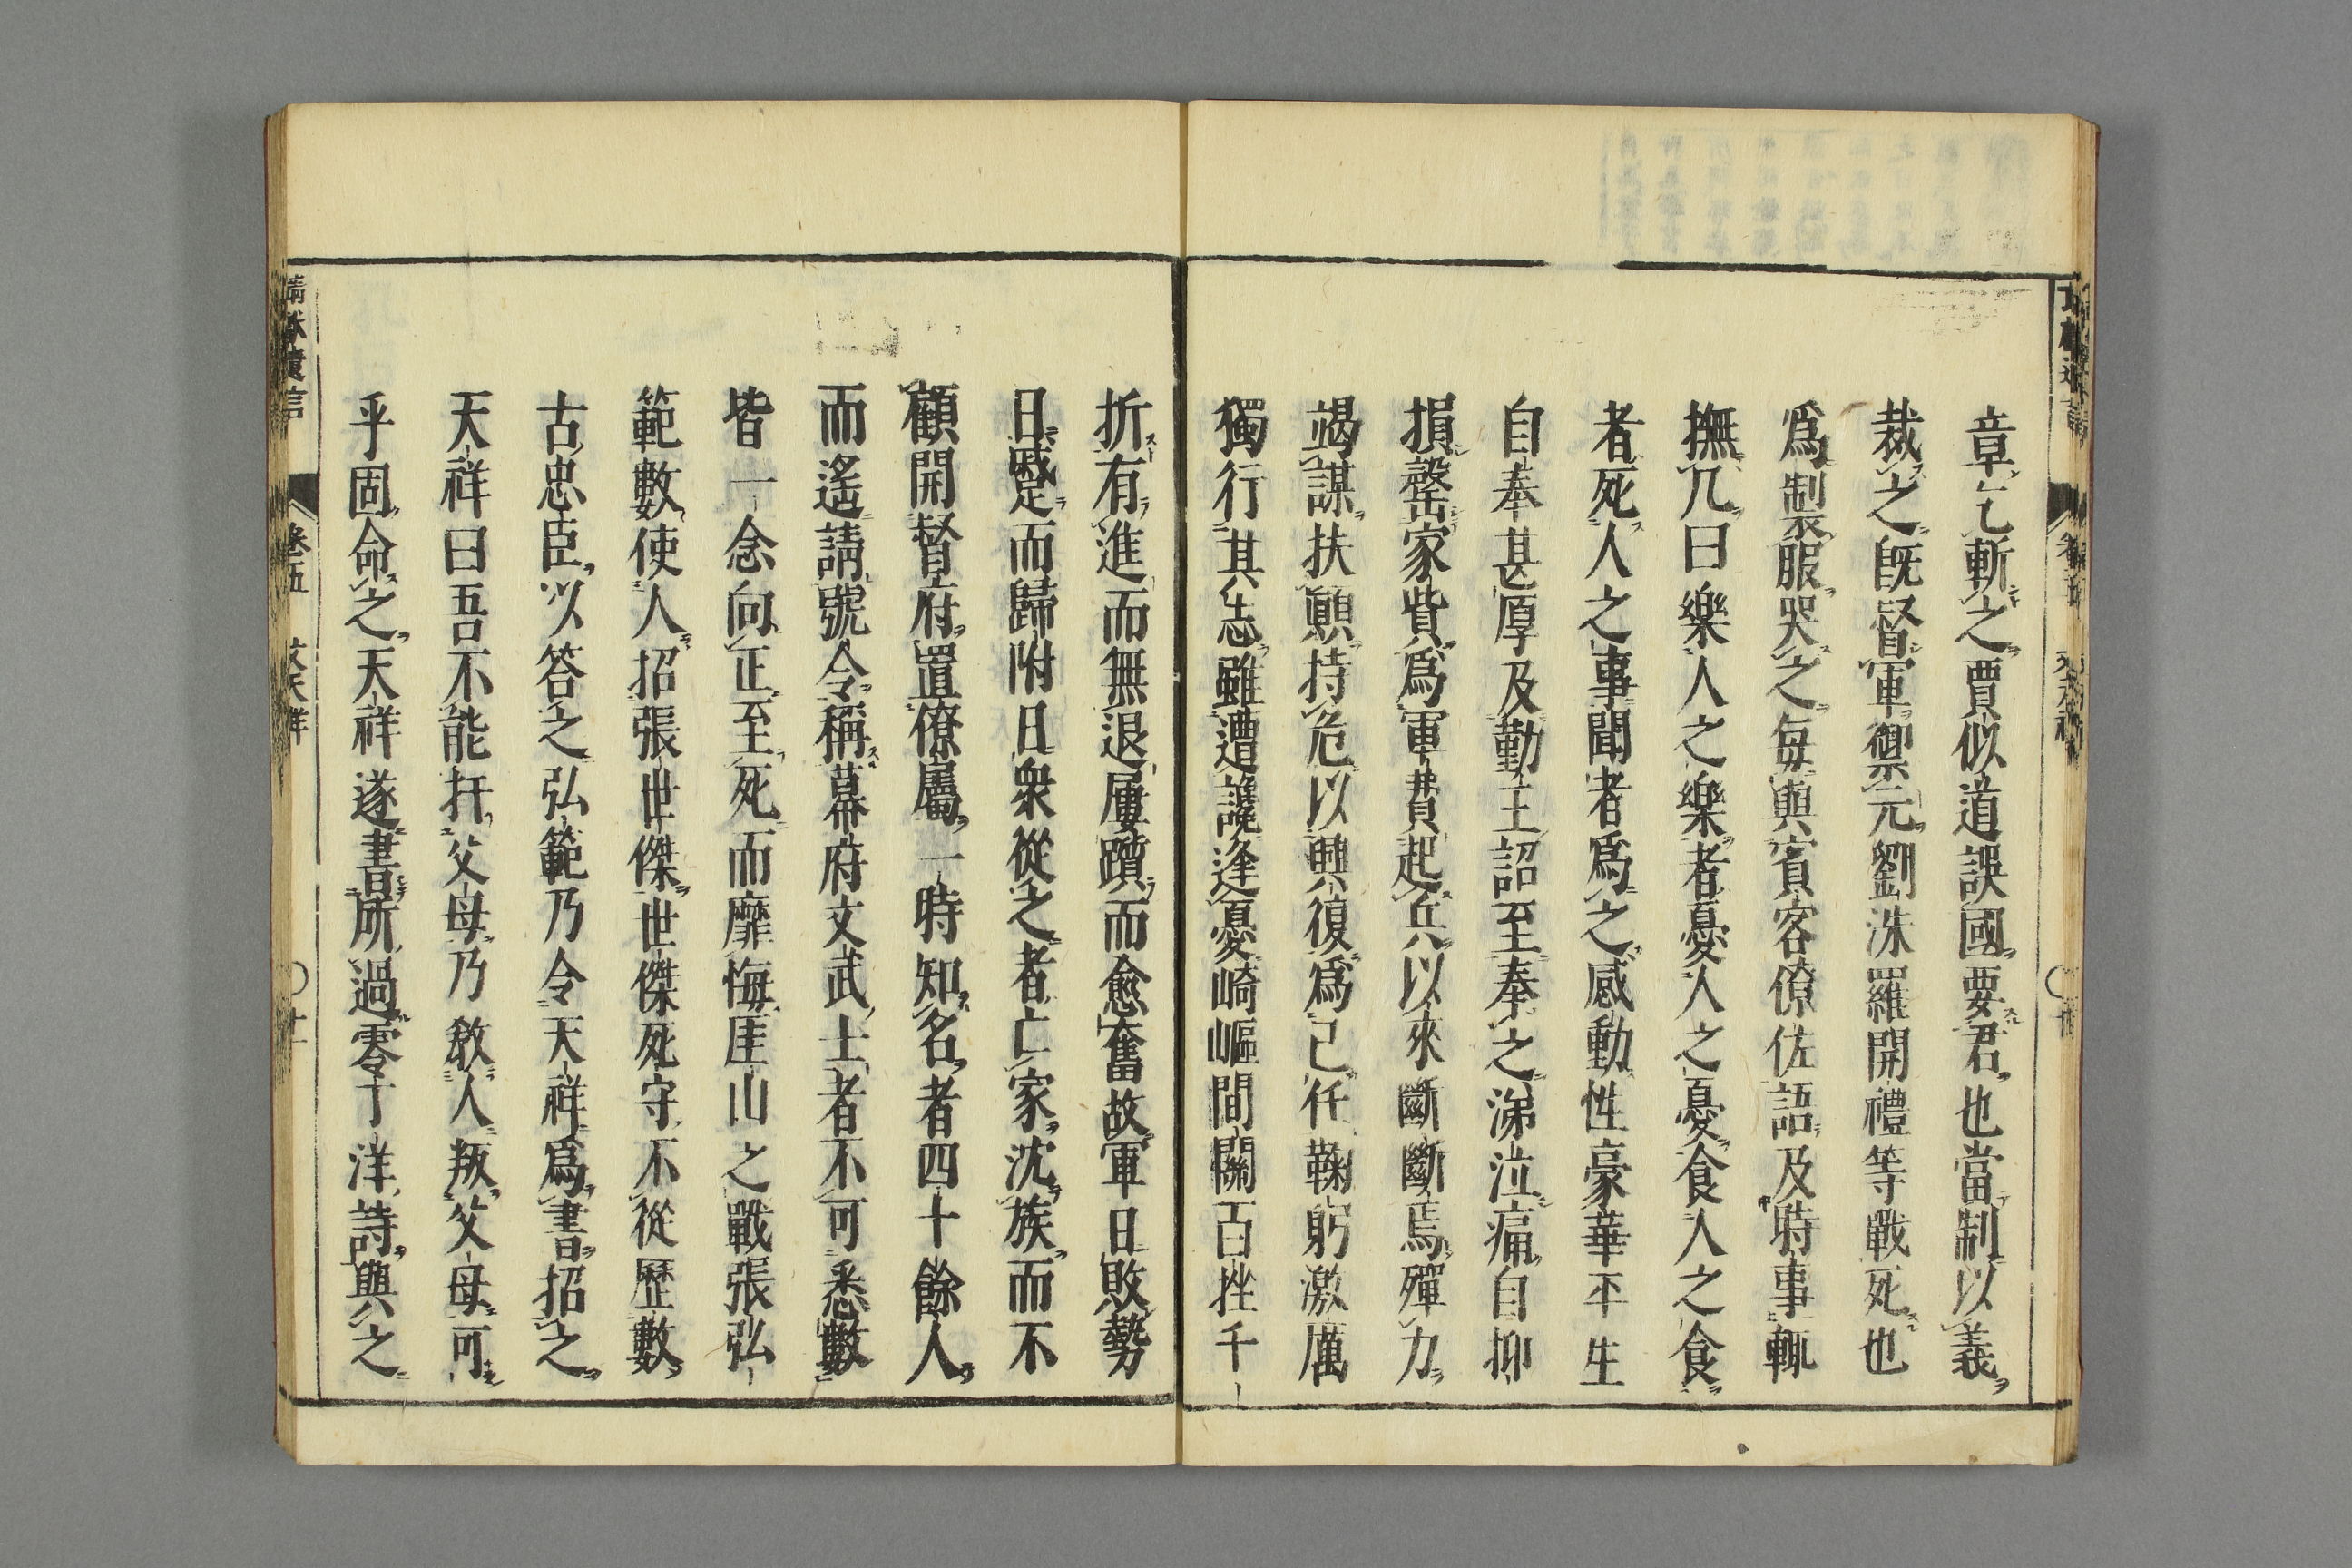 章乞斬之賈似道誤國要君也當制以義
裁之既督軍禦元劉洙羅開禮等戰死也
爲製服哭之每與賓客僚佐語及時事輒
撫几曰樂人之樂者憂人之憂食人之食
者死人之事聞者爲之感動性豪華平生
自奉甚厚及勤王詔至奉之涕泣痛自抑
損罄家貲爲軍費起兵以來斷斷焉殫力
竭謀扶顚持危以興復爲己任鞠躬激厲
獨行其志雖遭讒逢憂崎嶇間關百挫千
折有進而無退屢躓而愈奮故軍日敗勢
日蹙而歸附日衆從之者亡家沈族而不
顧開督府置僚屬一時知名者四十餘人
而遙請號令稱幕府文武士者不可悉數
皆一念向正至死而靡悔厓山之戰張弘
範數使人招張世傑世傑死守不從歷數
古忠臣以答之弘範乃令天祥爲書招之
天祥曰吾不能扞父母乃敎人叛父母可
乎固命之天祥遂書所過零丁洋詩與之
靖獻遺言 卷五 文天祥 〇十一